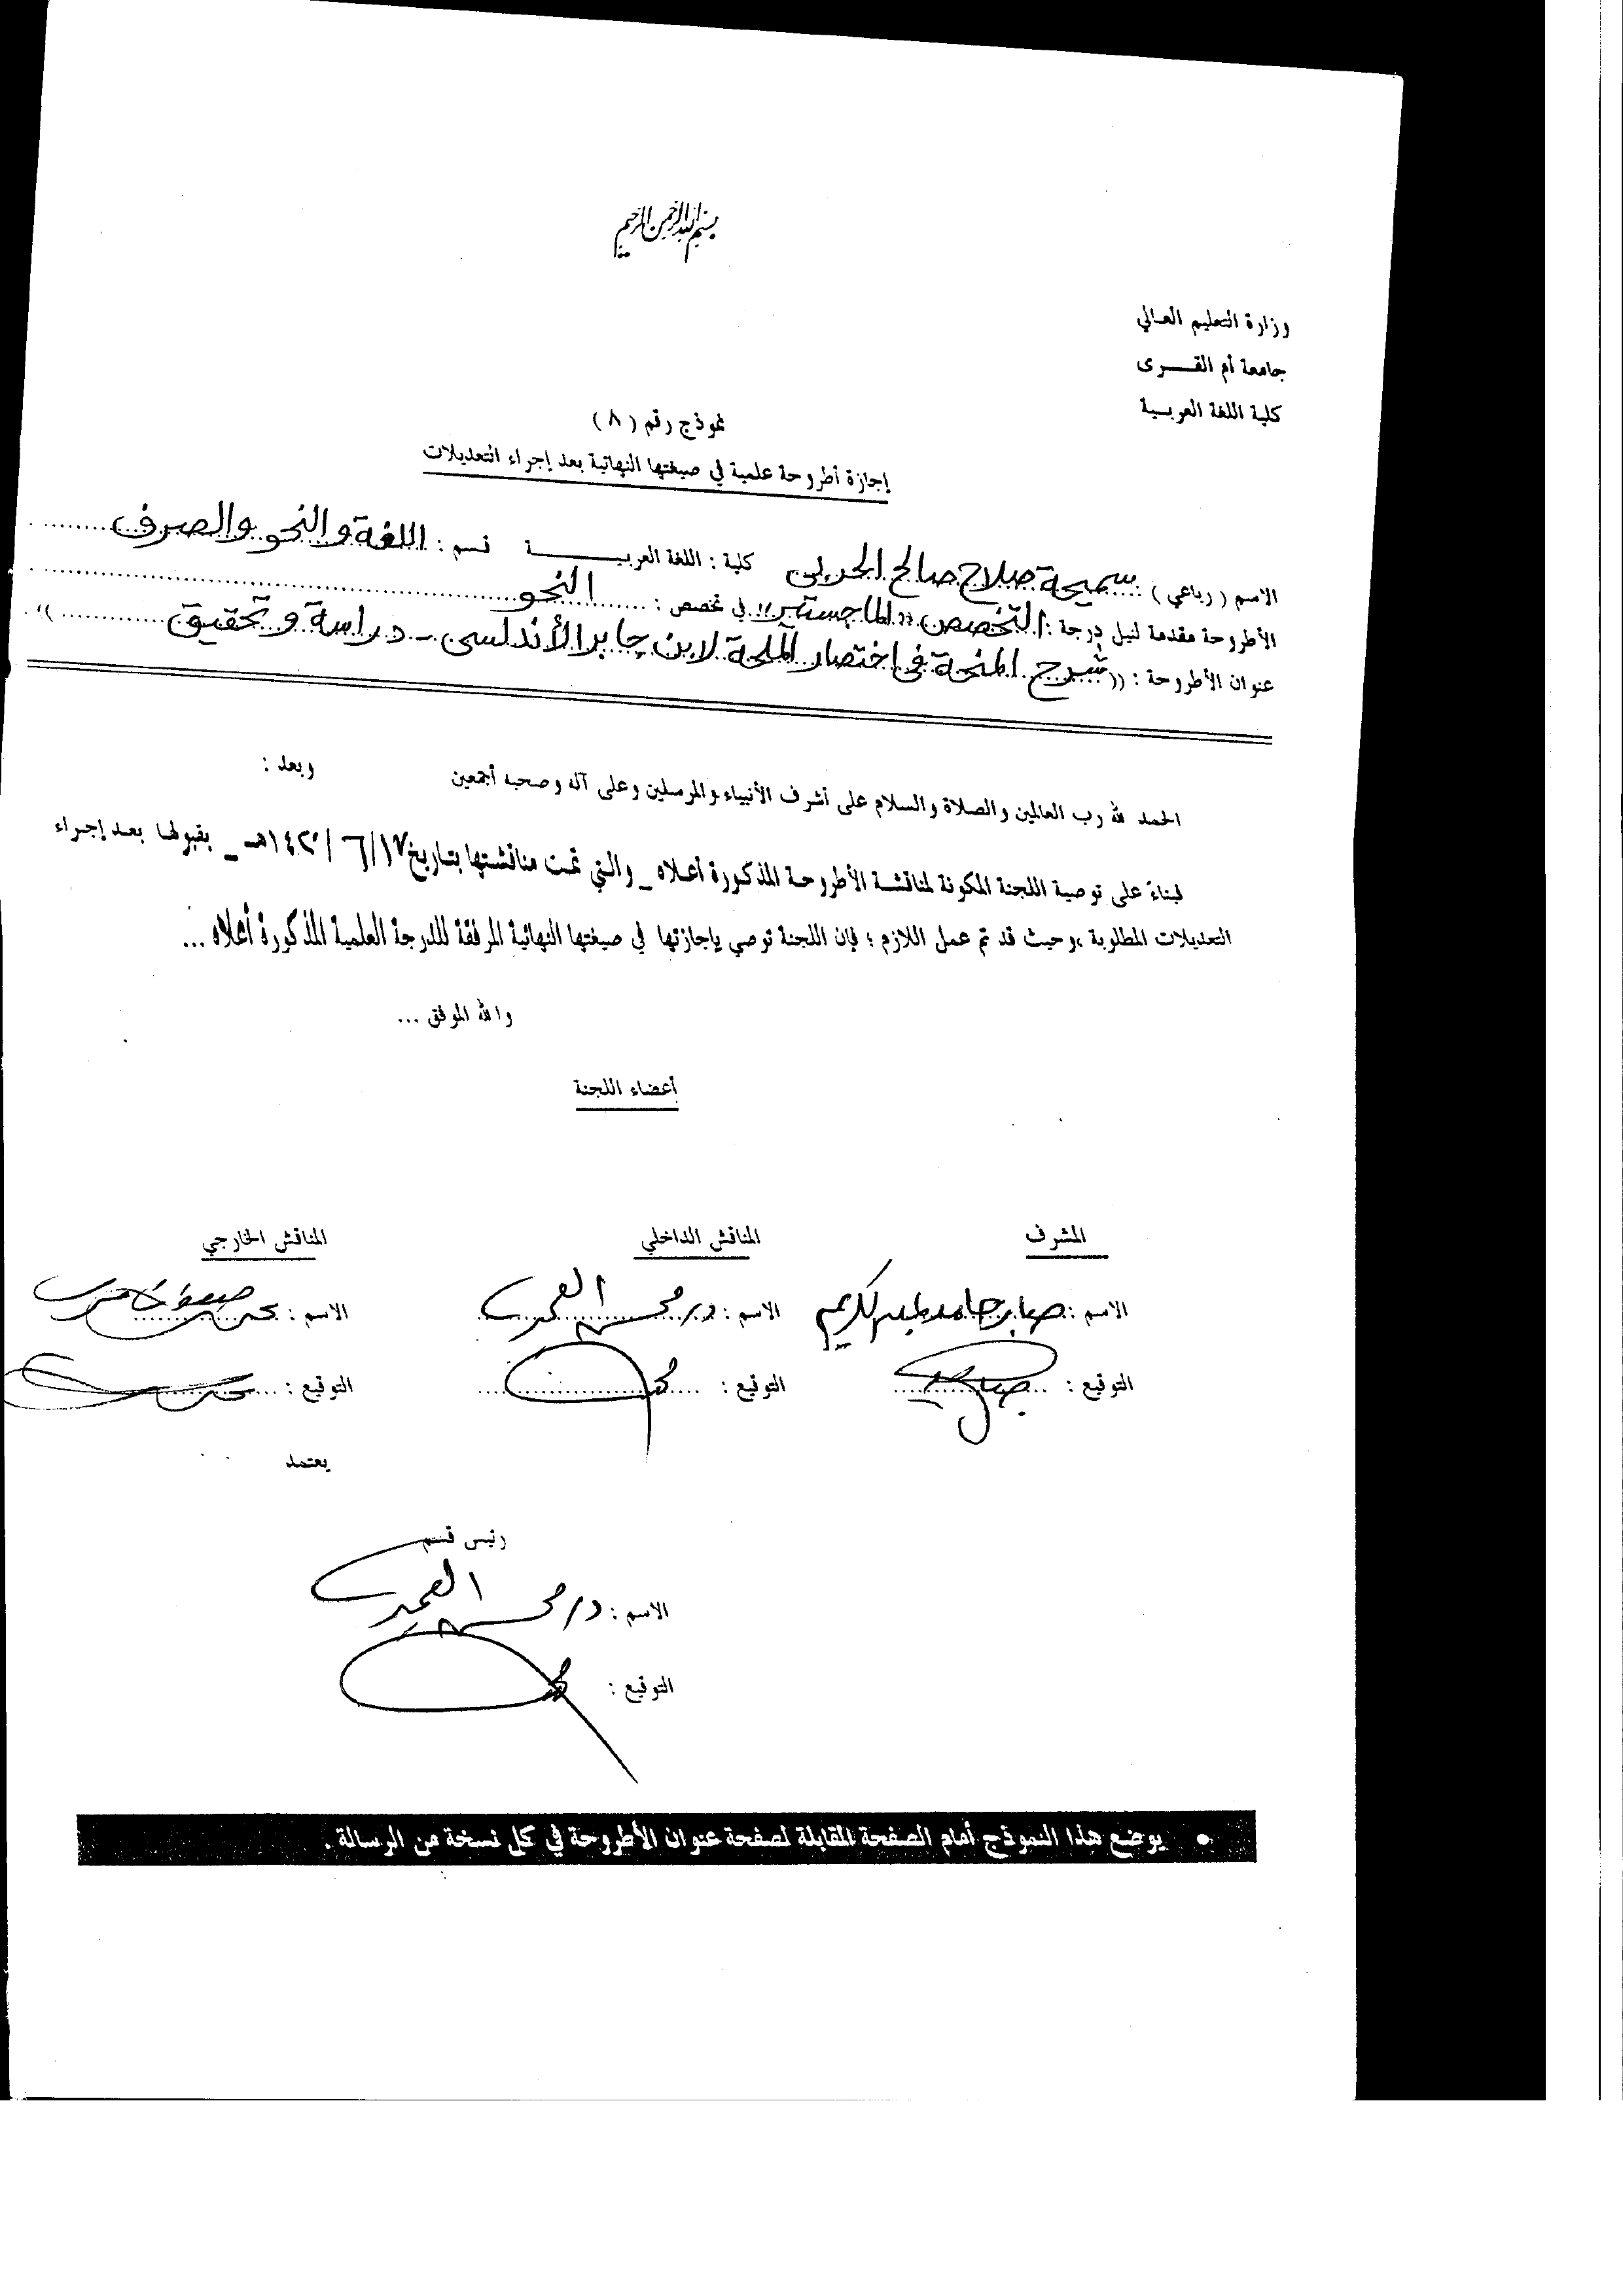 بسم الله الرحمن الرحيم
وزارة التعليم العالي
جامعة أم القــــرى
كلية اللغة العربـية
نموذج رقم ( ٨ )
إجازة أطروحة علمية في صيغتها النهائية بعد إجراء التعديلات
الاسم ( رباعي ) سميحة صلاح صالح الحربي كلية : اللغة العربــــــــــة قسم : اللغة والنحو والصرف
الأطروحة مقدمة لنيل درجة : التخصص (( الماجستير )) في تخصص : النحو
عنوان الأطروحة : (( شرح المنحة في اختصار الملحة لابن جابر الأندلسي - دراسة وتحقيق ))
الحمد لله رب العالمين والصلاة والسلام على أشرف الأنبياء والمرسلين وعلى آله وصحبه أجمعين وبعد :
فبناءً على توصية اللجنة المكونة لمناقشة الأطروحة المذكورة أعلاه _ والتي تمت مناقشتها بتاريخ ١٧/ ٦ / ١٤٢٠هـ _ بقبولها بعد إجراء
التعديلات المطلوبة ، وحيث قد تم عمل اللازم ؛ فإن اللجنة توصي بإجازتها في صيغتها النهائية المرفقة للدرجة العلمية المذكورة أعلاه ...
والله الموفق ...
أعضاء اللجنة
المشرف المناقش الداخلي المناقش الخارجي
الاسم : صابر حامد عبد الكريم الاسم : د/ محسن العميري الاسم :
التوقيع : التوقيع : التوقيع :
يعتمد
رئيس قسم
الاسم : د/ محسن العميري
التوقيع :
• يوضع هذا النموذج أمام الصفحة المقابلة لصفحة عنوان الأطروحة في كل نسخة من الرسالة .